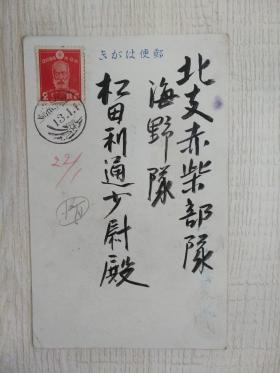 郵便はがき
北支赤柴部隊
海野隊
松田利通少尉殿
13.1.1
22/1